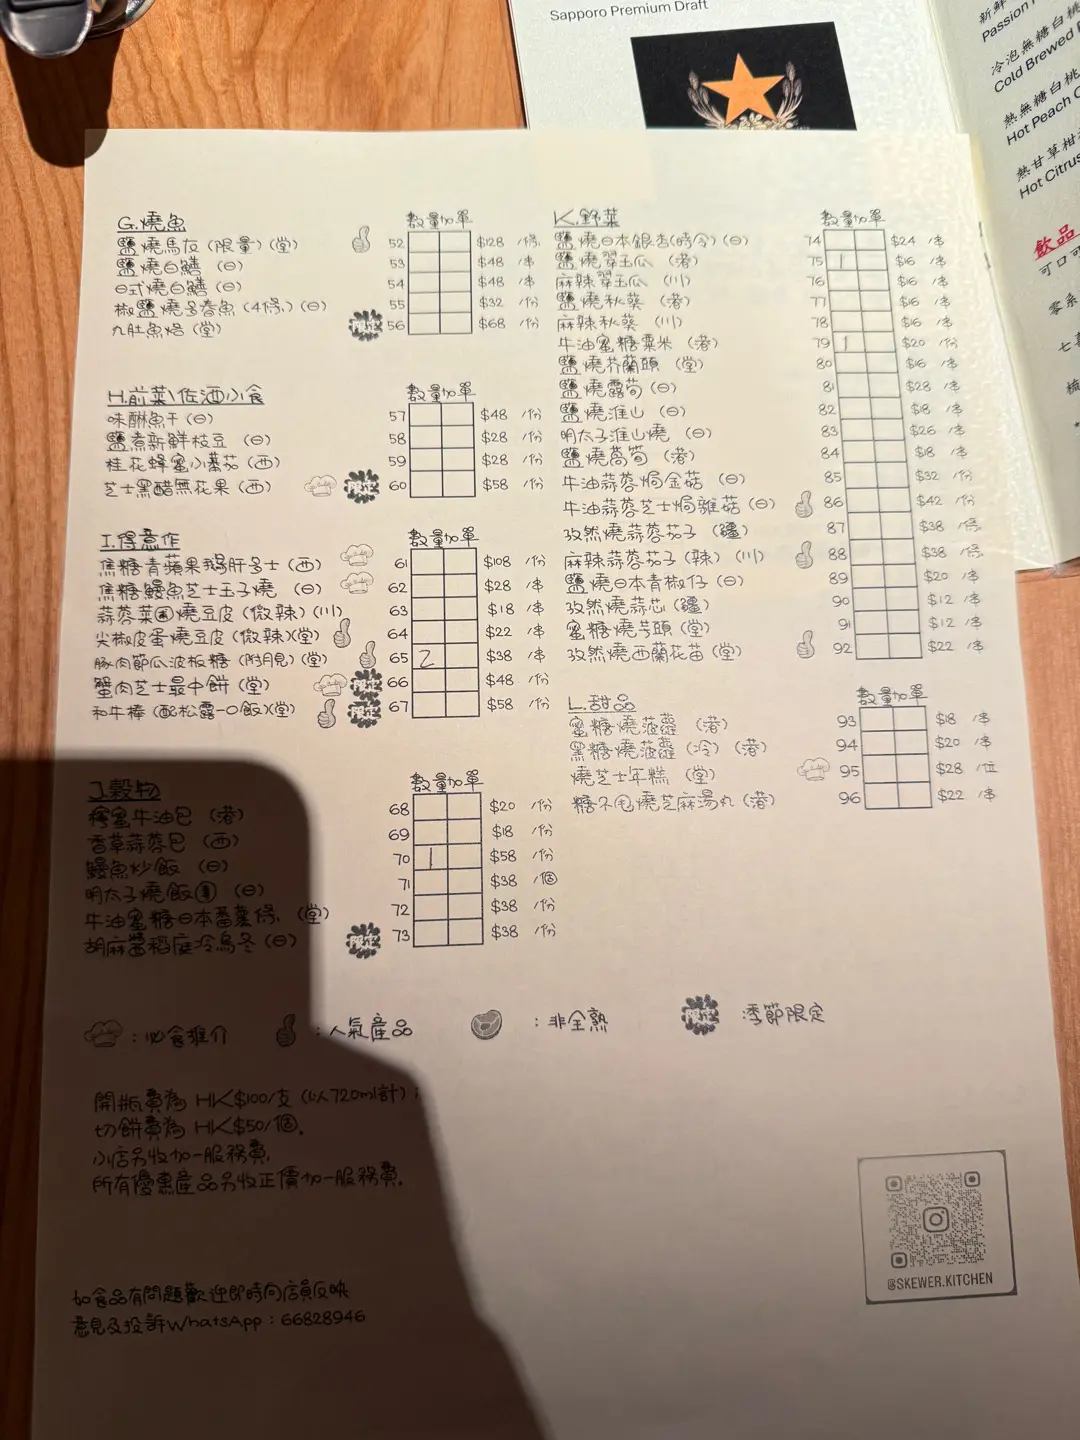 Sapporo Premium Draft
新鮮
Passion
冷泡無糖白桃
Cold Brewed
熱無糖白桃
Hot Peach
熱甘草柑
Hot Citrus
飲品
可口可
零系
七喜
G.燒魚 數量加單
鹽燒馬友(限量)(堂) 52 $128 /條
鹽燒白鱔 (日) 53 $48 /串
日式燒白鱔 (日) 54 $48 /串
椒鹽燒多春魚(4條)(日) 55 $32 /份
九肚魚烙(堂) 限定 56 $68 /份
H.前菜\佐酒小食 數量加單
味醂魚干(日) 57 $48 /份
鹽煮新鮮枝豆 (日) 58 $28 /份
桂花蜂蜜小蕃茄(西) 59 $28 /份
芝士黑醋無花果(西) 限定 60 $58 /份
I.得意作 數量加單
焦糖青蘋果鵝肝多士(西) 61 $108 /份
焦糖鰻魚芝士玉子燒 (日) 62 $28 /串
蒜蓉菜圃燒豆皮(微辣)(川) 63 $18 /串
尖椒皮蛋燒豆皮(微辣)(堂) 64 $22 /串
豚肉節瓜波板糖(附月見)(堂) 65 2 $38 /串
蟹肉芝士最中餅(堂) 限定 66 $48 /份
和牛棒(配松露一口飯)(堂) 限定 67 $58 /份
J.穀物 數量加單
檸蜜牛油包 (港) 68 $20 /份
香草蒜蓉包 (西) 69 $18 /份
鰻魚炒飯 (日) 70 1 $58 /份
明太子燒飯團 (日) 71 $38 /個
牛油蜜糖日本蕃薯條 (堂) 72 $38 /份
胡麻醬稻庭冷烏冬(日) 限定 73 $38 /份
K.野菜 數量加單
鹽燒日本銀杏(時令)(日) 74 $24 /串
鹽燒翠玉瓜 (港) 75 1 $16 /串
麻辣翠玉瓜 (川) 76 $16 /串
鹽燒秋葵 (港) 77 $16 /串
麻辣秋葵 (川) 78 $16 /串
牛油蜜糖粟米 (港) 79 1 $20 /份
鹽燒芥蘭頭 (堂) 80 $16 /串
鹽燒露筍(日) 81 $28 /串
鹽燒淮山 (日) 82 $18 /串
明太子淮山燒 (日) 83 $26 /串
鹽燒萵筍 (港) 84 $18 /串
牛油蒜蓉焗金菇 (日) 85 $32 /份
牛油蒜蓉芝士焗雜菇 (日) 86 $42 /份
孜然燒蒜蓉茄子 (疆) 87 $38 /條
麻辣蒜蓉茄子(辣) (川) 88 $38 /條
鹽燒日本青椒仔(日) 89 $20 /串
孜然燒蒜芯(疆) 90 $12 /串
蜜糖燒芋頭(堂) 91 $12 /串
孜然燒西蘭花苗(堂) 92 $22 /串
L.甜品 數量加單
蜜糖燒菠蘿 (港) 93 $18 /串
黑糖燒菠蘿(冷) (港) 94 $20 /串
燒芝士年糕 (堂) 95 $28 /位
糖不甩燒芝麻湯丸(港) 96 $22 /串
:必食推介 :人氣產品 :非全熟 限定 :季節限定
開瓶費為 HK$100/支(以720ml計);
切餅費為 HK$50/個。
小店另收加一服務費,
所有優惠產品另收正價加一服務費。
如食品有問題歡迎即時向店員反映
意見及投訴WhatsApp:66828946
@SKEWER.KITCHEN